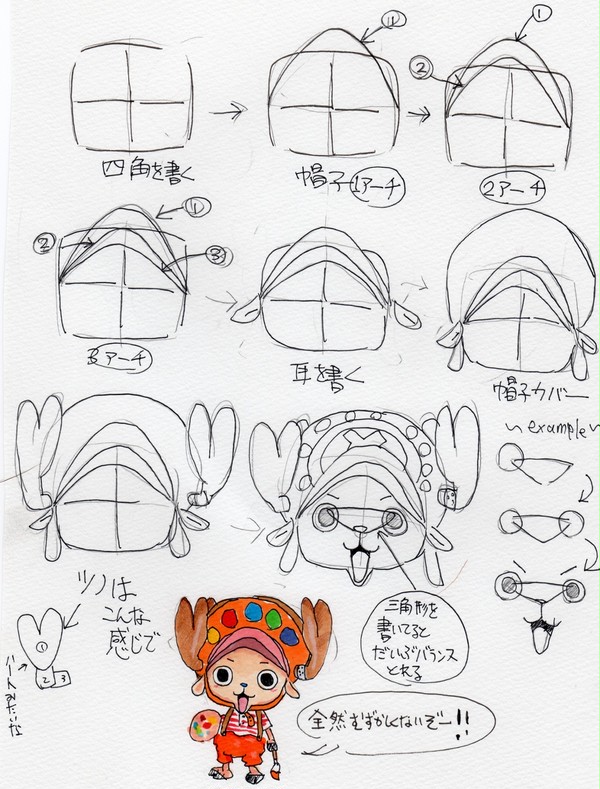 ①
①
②
四角を書く
帽子1アーチ
2アーチ
①
②
③
3アーチ
耳を書く
帽子カバー
~example~
ツノは
こんな
感じで
①
2 3
ハートみたいな
三角形を
書いてると
だいぶバランス
とれる
全然むずかしくないぞー!!